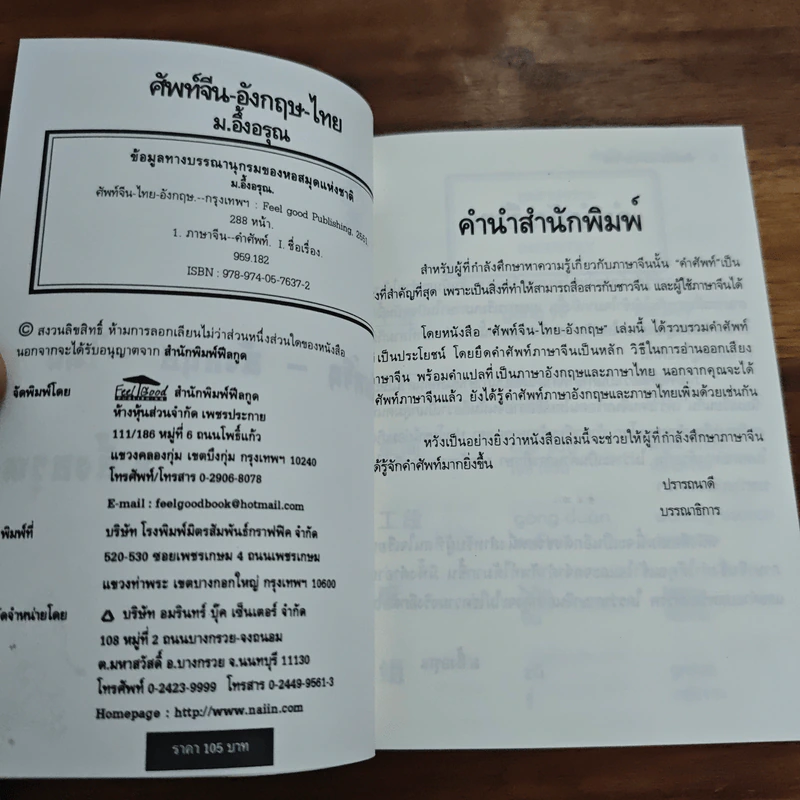 ศัพท์จีน-อังกฤษ-ไทย
ม.อึ้งอรุณ
ข้อมูลทางบรรณานุกรมของหอสมุดแห่งชาติ
ม.อึ้งอรุณ.
ศัพท์จีน-ไทย-อังกฤษ.--กรุงเทพฯ : Feel good Publishing,
288 หน้า.
1. ภาษาจีน--คำศัพท์. I. ชื่อเรื่อง.
959.182
ISBN : 978-974-05-7637-2
© สงวนลิขสิทธิ์ ห้ามการลอกเลียนไม่ว่าส่วนหนึ่งส่วนใดของหนังสือ
นอกจากจะได้รับอนุญาตจาก สำนักพิมพ์ฟีลกูด
จัดพิมพ์โดย Feel Good สำนักพิมพ์ฟีลกูด
ห้างหุ้นส่วนจำกัด เพชรประกาย
111/186 หมู่ที่ 6 ถนนโพธิ์แก้ว
แขวงคลองกุ่ม เขตบึงกุ่ม กรุงเทพฯ 10240
โทรศัพท์/โทรสาร 0-2906-8078
E-mail : feelgoodbook@hotmail.com
พิมพ์ที่ บริษัท โรงพิมพ์มิตรสัมพันธ์กราฟฟิค จำกัด
520-530 ซอยเพชรเกษม 4 ถนนเพชรเกษม
แขวงท่าพระ เขตบางกอกใหญ่ กรุงเทพฯ 10600
จัดจำหน่ายโดย บริษัท อมรินทร์ บุ๊ค เซ็นเตอร์ จำกัด
108 หมู่ที่ 2 ถนนบางกรวย-จงถนอม
ต.มหาสวัสดิ์ อ.บางกรวย จ.นนทบุรี 11130
โทรศัพท์ 0-2423-9999 โทรสาร 0-2449-9561-3
Homepage : http://www.naiin.com
ราคา 105 บาท
คำนำสำนักพิมพ์
สำหรับผู้ที่กำลังศึกษาหาความรู้เกี่ยวกับภาษาจีนนั้น "คำศัพท์" เป็น
งที่สำคัญที่สุด เพราะเป็นสิ่งที่ทำให้สามารถสื่อสารกับชาวจีน และผู้ใช้ภาษาจีนได้
โดยหนังสือ "ศัพท์จีน-ไทย-อังกฤษ" เล่มนี้ ได้รวบรวมคำศัพท์
เป็นประโยชน์ โดยยึดคำศัพท์ภาษาจีนเป็นหลัก วิธีในการอ่านออกเสียง
าจีน พร้อมคำแปลที่เป็นภาษาอังกฤษและภาษาไทย นอกจากคุณจะได้
ศัพท์ภาษาจีนแล้ว ยังได้รู้คำศัพท์ภาษาอังกฤษและภาษาไทยเพิ่มด้วยเช่นกัน
หวังเป็นอย่างยิ่งว่าหนังสือเล่มนี้จะช่วยให้ผู้ที่กำลังศึกษาภาษาจีน
ได้รู้จักคำศัพท์มากยิ่งขึ้น
ปรารถนาดี
บรรณาธิการ